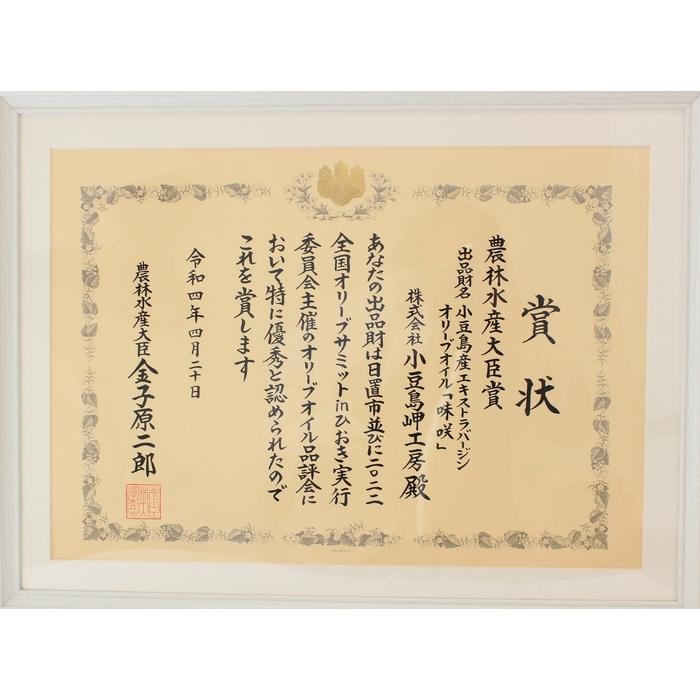 賞状
農林水産大臣賞
出品財名 小豆島産エキストラバージン
オリーブオイル「味咲」
株式会社 小豆島岬工房 殿
あなたの出品財は日置市並びに二〇二二
全国オリーブサミットinひおき実行
委員会主催のオリーブオイル品評会に
おいて特に優秀と認められたので
これを賞します
令和四年四月二十日
農林水産大臣 金子原二郎